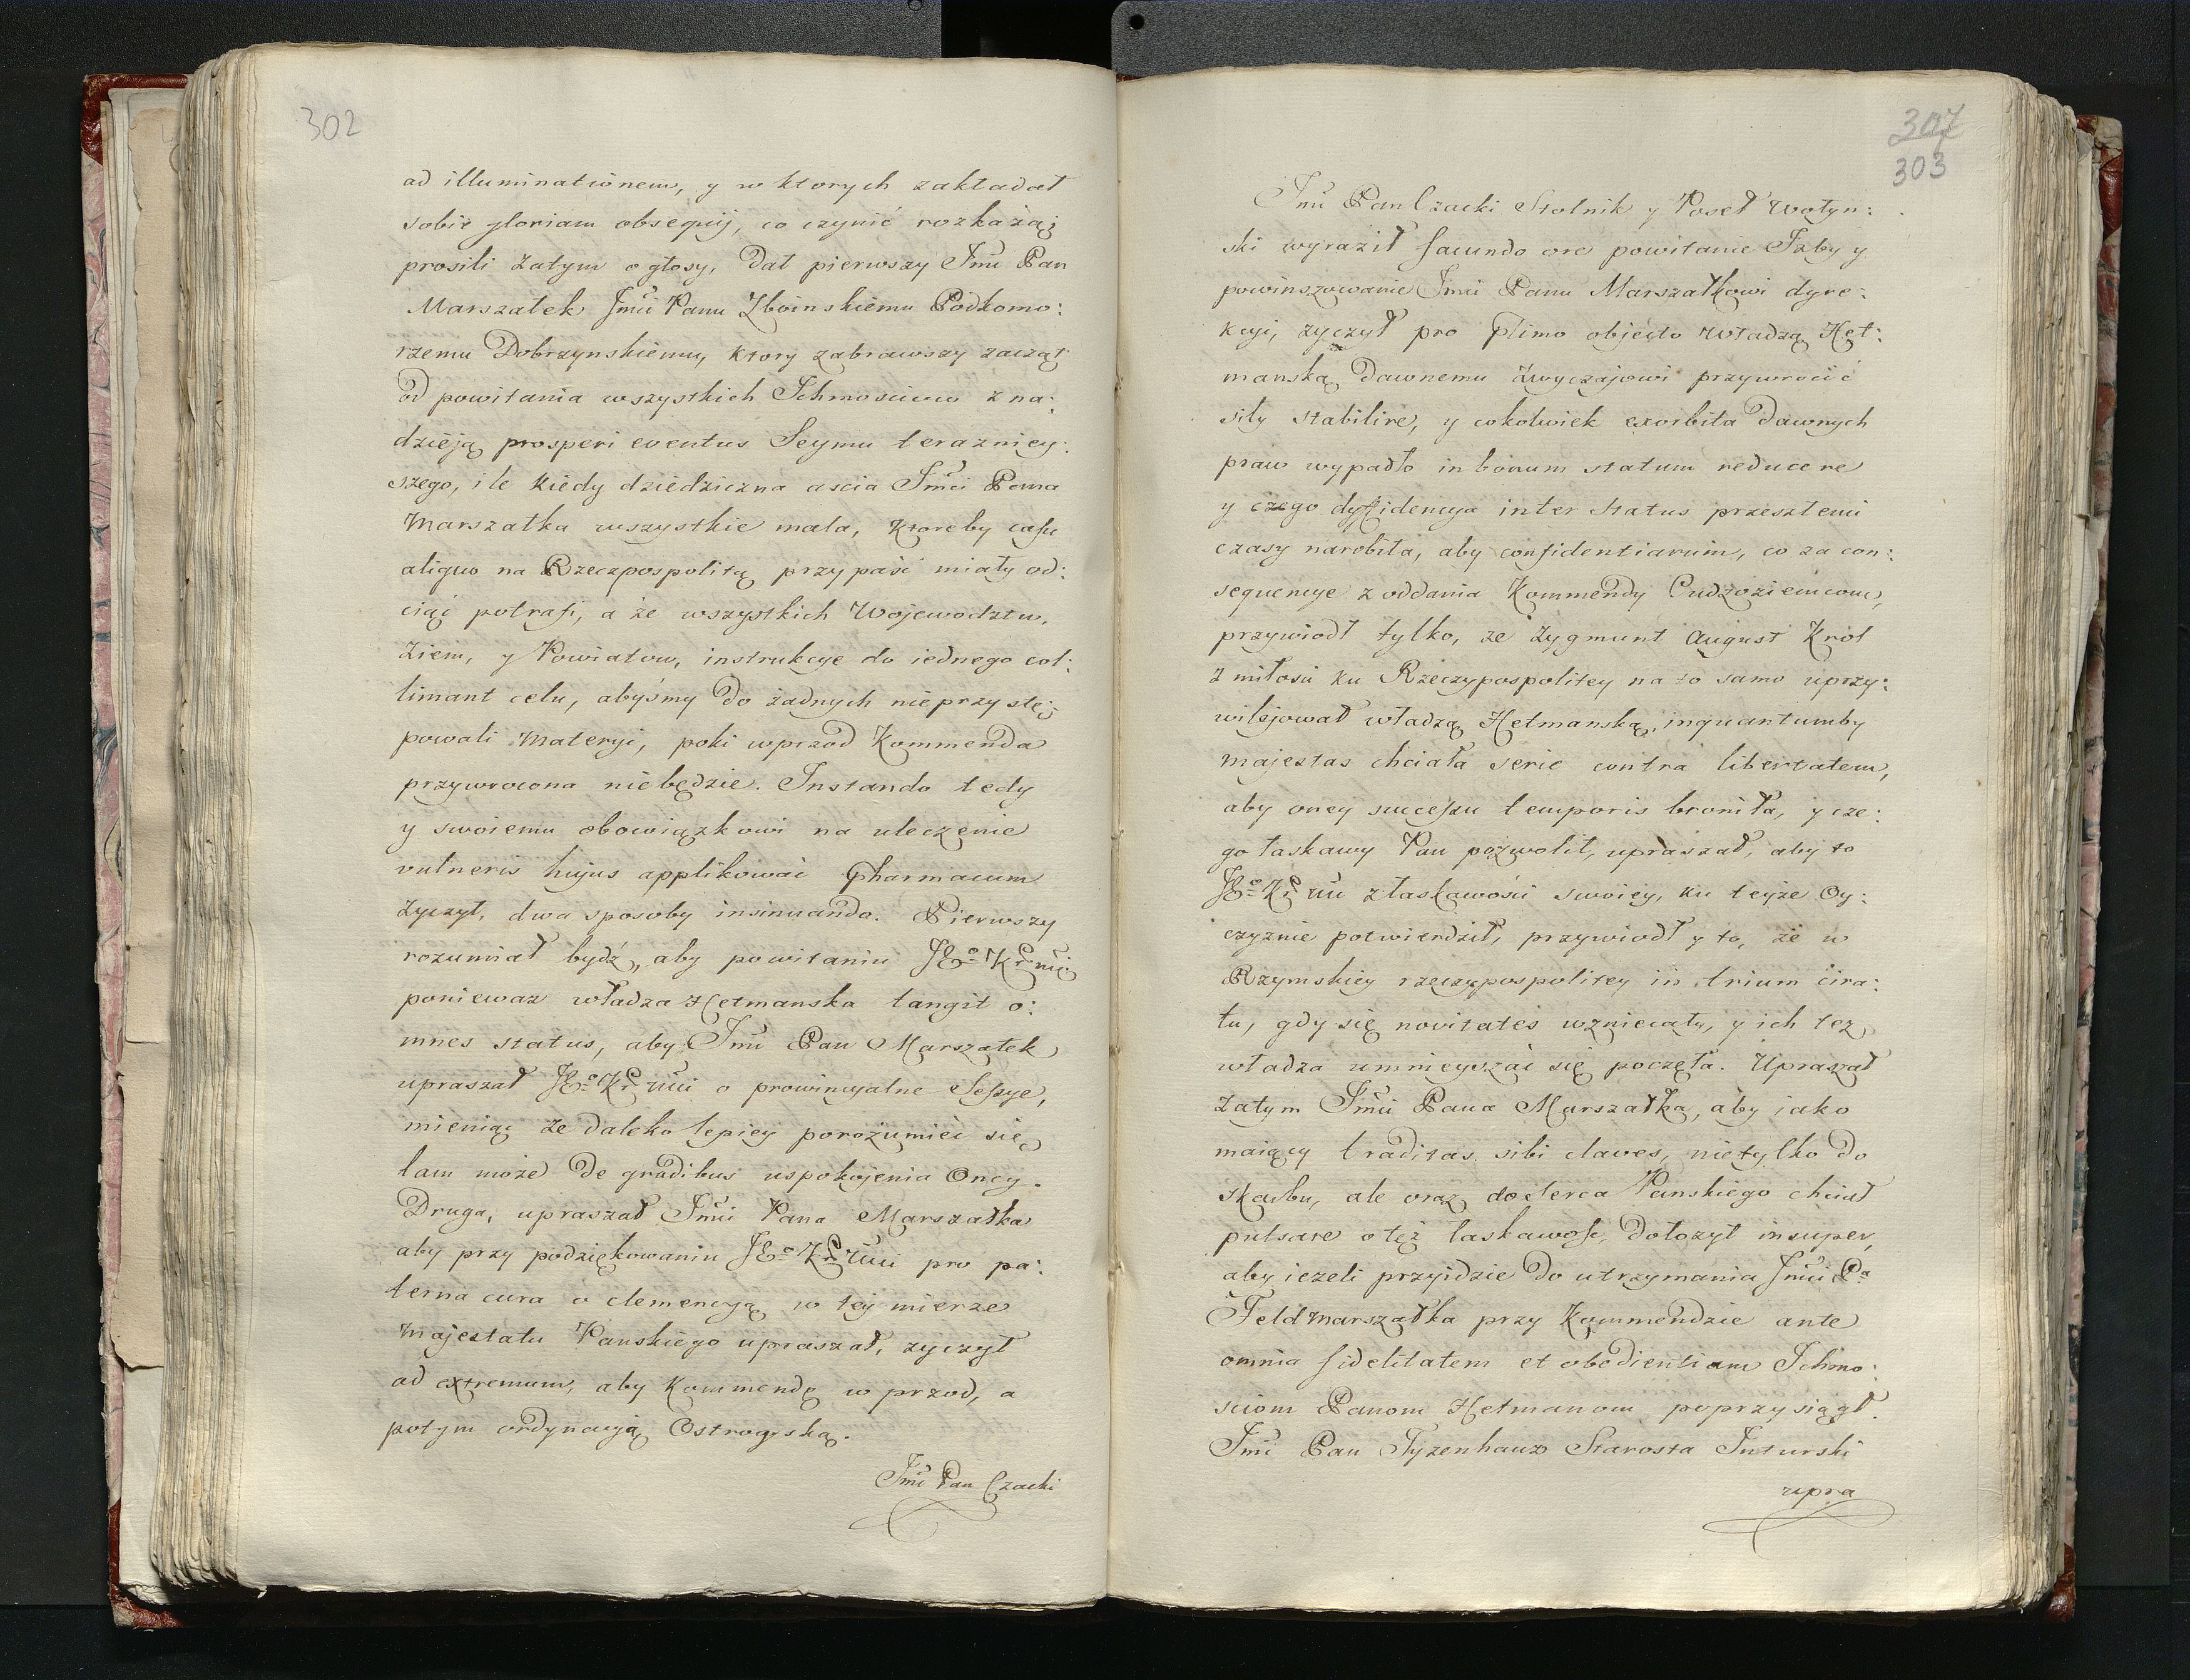 302
ad illuminationem, y w ktorych zakładał
sobie gloriam obsequij, co czynić rozkażą;
prosili zatym o głosy, dał pierwszy Jmci Pan
Marszałek Jmci Panu Zboinskiemu Podkomo:
rzemu Dobrzynskiemu, ktory zabrawszy zaczął
od powitania wszystkich Ichmosciow z na:
dzieją prosperi eventus Seymu teraznicy:
szego, ile kiedy dziedziczna ascia Jmci Pana
Marszałka wszystkie mala, ktore by casu
aliquo na Rzeczpospolitą przypaść miały od:
ciąć potrafi, a że wszystkich Wojewodztw,
Ziem, y Powiatow, instrukcye do iednego col:
limant celu, abyśmy do żadnych nieprzystę:
powali Materyi, poki wprzod Kommenda
przywrocona niebędzie. Instando tedy
y swoiemu obowiązkowi na uleczenie
vulneris hujus applikować pharmacum
życzył, dwa sposoby insinuando. Pierwszy
rozumiał bydź, aby powitaniu JEo Kr Mci
poniewaz władza Hetmanska tangit o:
mnes status, aby Jmci Pan Marszałek
upraszał JEo Kr Mci o prowincyalne Sessye,
mieniąc że daleko lepiey porozumieć się
tam może de gradibus uspokojenia Oney.
Druga, upraszał Jmci Pana Marszałka
aby przy podziękowaniu JEo Kr Mci pro pa:
terna cura o clemencyą w tey mierze
Majestatu Panskiego upraszał, życzył
ad extremum, aby Kommendę w przod, a
potym ordynacyą Ostrogską.
Jmci Pan Czacki
307
303
Jmci Pan Czacki Stolnik y Poseł Wołyn:
ski wyraził facundo ore powitanie Izby y
powinszowanie Jmci Panu Marszałkowi dyre:
kcyi, życzył pro plimo objecto władzą Het:
manską dawnemu zwyczajowi przywrocić
siły stabilire, y cokolwiek exorbita dawnych
praw wypadło in bonum statum reducere
y czego dyffidencya inter Status przeszłemi
czasy narobiła, aby confidentiarum, co za con:
sequencye z oddania Kommendy Cudzoziemcom,
przywiodł tylko, ze Zygmunt August Krol
z miłosci ku Rzeczypospolitey na to samo uprzy:
wilejował władzą Hetmanską, inquantumby
majestas chciała serie contra libertatem,
aby oney successu temporis broniła, y cze:
go łaskawy Pan pozwolił, upraszał, aby to
JEo Kr Mci z łaskawości swoiey, ku teyże Oy:
czyznie potwierdził, przywiodł y to, że w
Rzymskiey rzeczypospolitey in trium vira:
tu, gdy się novitates wzniecały, y ich też
władza umnieyszać się poczęła. Upraszał
zatym Jmci Pana Marszałka, aby iako
maiący traditas sibi claves, nietylko do
skarbu, ale oraz do serca Panskiego chciał
pulsare o też łaskawość, dołożył insuper,
aby ieżeli przyidzie do utrzymania Jmci Pa
Feldmarszałka przy Kommendzie ante
omnia fidelitatem et obedientiam Ichmo:
sciom Panom Hetmanom poprzysiągł.
Jmci Pan Tyzenhauz Starosta Inturski
upra